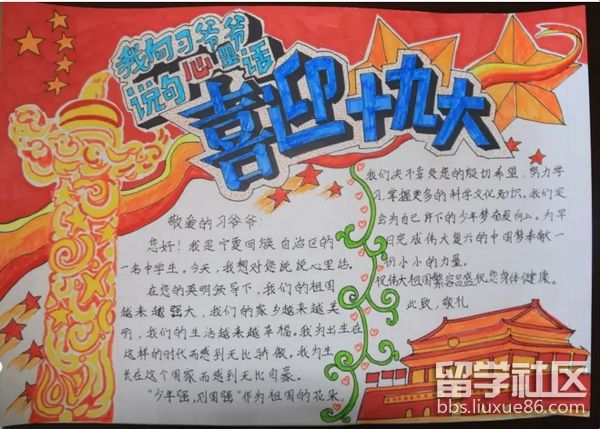 我向习爷爷
说句心里话
喜迎十九大
敬爱的习爷爷：
您好！我是宁夏回族自治区的
一名中学生。今天，我想对您说说心里话。
在您的英明领导下，我们的祖国
越来越强大，我们的家乡越来越美
丽，我们的生活越来越幸福。我为出生在
这样的时代而感到无比骄傲。我为生
长在这个国家而感到无比自豪。
“少年强，则国强”作为祖国的花朵，
我们决不辜负您的殷切希望，努力学
习，掌握更多的科学文化知识。我们定
会为自己许下的少年梦奋发向上。为早
日完成伟大复兴的中国梦奉献一
份小小的力量。
祝伟大祖国繁荣昌盛祝您身体健康。
此致，敬礼
留学社区
bbs.liuxue86.com